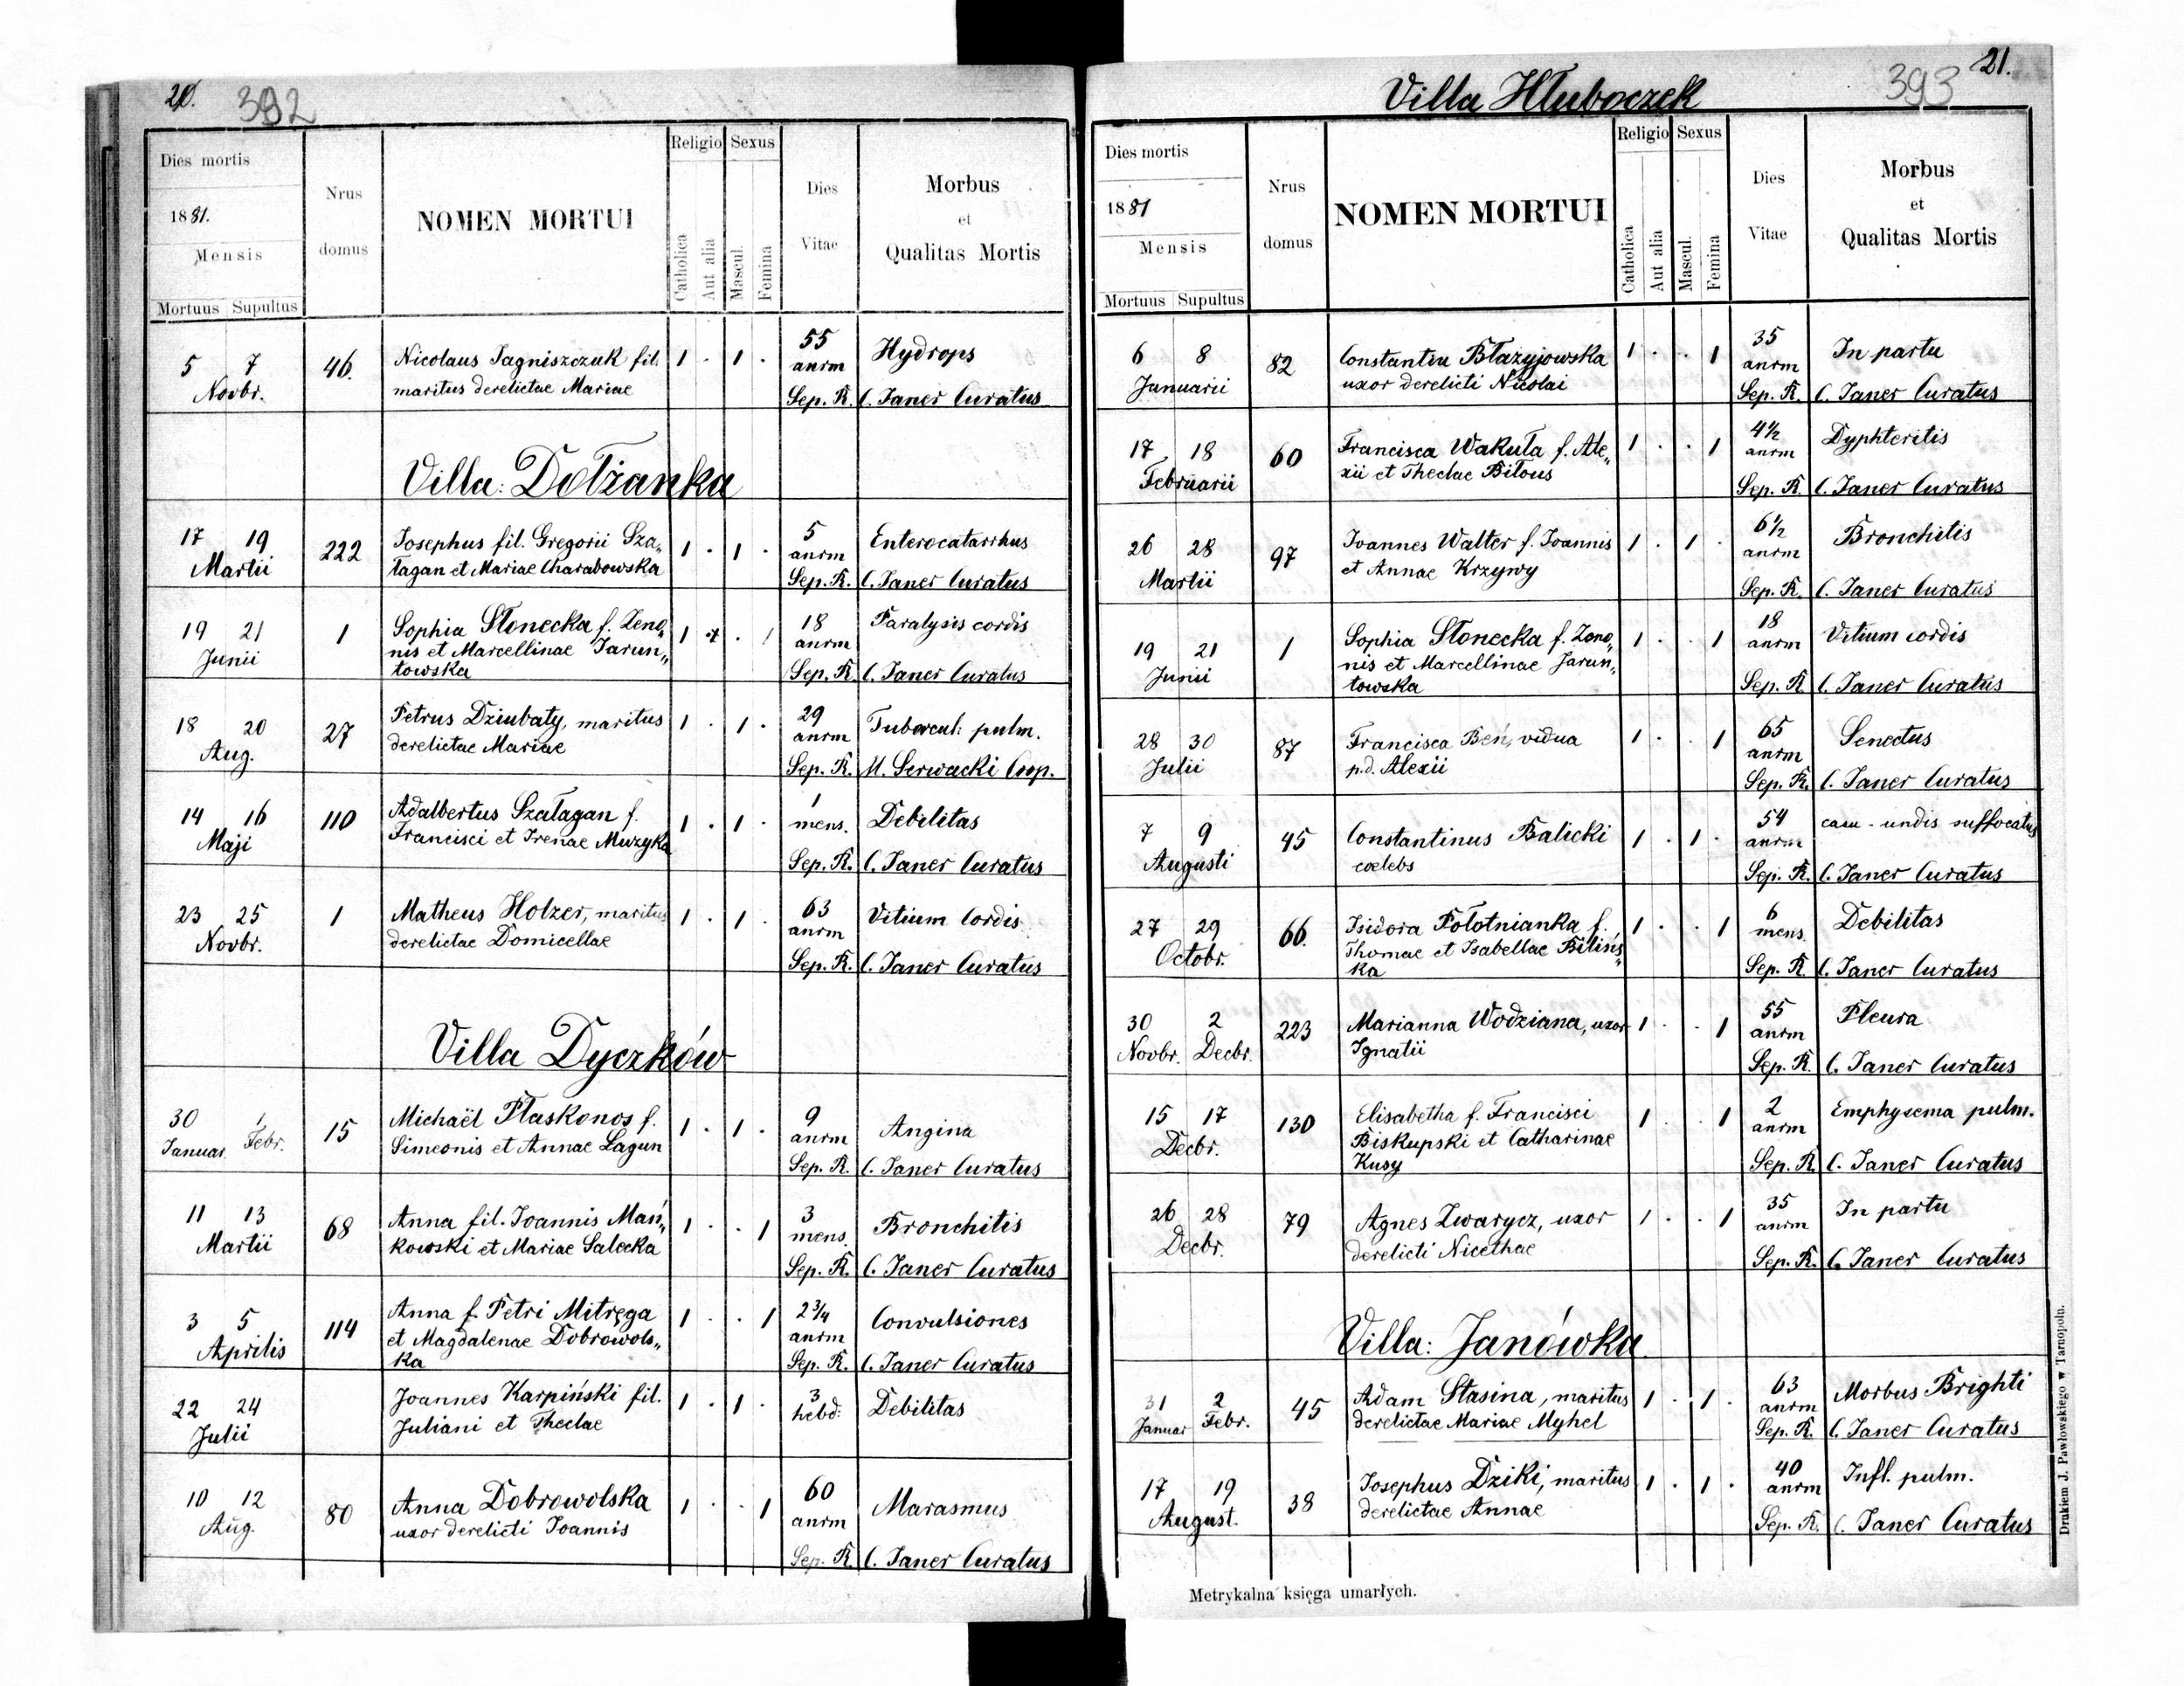 20. 392
Dies mortis
1881.
Mensis
Mortuus Supultus
Nrus
domus
NOMEN MORTUI
Religio
Catholica
Aut alia
Sexus
Mascul.
Femina
Dies
Vitae
Morbus
et
Qualitas Mortis
5 7
Novbr.
46.
Nicolaus Jagniszczuk fil.
maritus derelictae Mariae
1 . 1 .
55
anrm
Hydrops
Sep. R. C. Janer Curatus
Villa: Dołżanka
17 19
Martii
222
Josephus fil. Gregorii Sza„
łagan et Mariae Charabowska
1 . 1 .
5
anrm
Enterocatarrhus
Sep. R. C. Janer Curatus
19 21
Junii
1
Sophia Słonecka f. Zeno„
nis et Marcellinae Jarun„
towska
1 . . 1
18
anrm
Paralysis cordis
Sep. R. C. Janer Curatus
18 20
Aug.
27
Petrus Dziubaty, maritus
derelictae Mariae
1 . 1 .
29
anrm
Tubercul: pulm.
Sep. R. M. Serwacki Coop.
14 16
Maji
110
Adalbertus Szałagan f.
Francisci et Irenae Muzyka
1 . 1 .
1
mens.
Debilitas
Sep. R. C. Janer Curatus
23 25
Novbr.
1
Matheus Holzer, maritus
derelictae Domicellae
1 . 1 .
63
anrm
Vitium Cordis
Sep. R. C. Janer Curatus
Villa Dyczków
30 1
Januar. Febr.
15
Michaël Płaskonos f.
Simeonis et Annae Lagun
1 . 1 .
9
anrm
Angina
Sep. R. C. Janer Curatus
11 13
Martii
68
Anna fil. Joannis Mań„
kowski et Mariae Salecka
1 . . 1
3
mens.
Bronchitis
Sep. R. C. Janer Curatus
3 5
Aprilis
114
Anna f. Petri Mitręga
et Magdalenae Dobrowols„
ka
1 . . 1
2 3/4
anrm
Convulsiones
Sep. R. C. Janer Curatus
22 24
Julii
Joannes Karpiński fil.
Juliani et Theclae
1 . 1 .
3
hebd:
Debilitas
10 12
Aug.
80
Anna Dobrowolska
uxor derelicti Joannis
1 . . 1
60
anrm
Marasmus
Sep. R. C. Janer Curatus
Villa Hłuboczek
393 21.
Dies mortis
1881
Mensis
Mortuus Supultus
Nrus
domus
NOMEN MORTUI
Religio
Catholica
Aut alia
Sexus
Mascul.
Femina
Dies
Vitae
Morbus
et
Qualitas Mortis
6 8
Januarii
82
Constantia Błazyjowska
uxor derelicti Nicolai
1 . . 1
35
anrm
In partu
Sep. R. C. Janer Curatus
17 18
Februarii
60
Francisca Wakuła f. Ale„
xii et Theclae Biłous
1 . . 1
4 1/2
anrm
Dyphteritis
Sep. R. C. Janer Curatus
26 28
Martii
97
Joannes Walter f. Joannis
et Annae Krzywy
1 . 1 .
6 1/2
anrm
Bronchitis
Sep. R. C. Janer Curatus
19 21
Junii
1
Sophia Słonecka f. Zeno„
nis et Marcellinae Jarun„
towska
1 . . 1
18
anrm
Vitium cordis
Sep. R. C. Janer Curatus
28 30
Julii
87
Francisca Beń, vidua
p.d. Alexii
1 . . 1
65
anrm
Senectus
Sep. R. C. Janer Curatus
7 9
Augusti
45
Constantinus Balicki
coelebs
1 . 1 .
54
anrm
casu - undis suffocatus
Sep. R. C. Janer Curatus
27 29
Octobr.
66.
Isidora Połotnianka f.
Thomae et Isabellae Bilińs„
ka
1 . . 1
6
mens.
Debilitas
Sep. R. C. Janer Curatus
30 2
Novbr. Decbr.
223
Marianna Wodziana, uxor
Ignatii
1 . . 1
55
anrm
Pleura
Sep. R. C. Janer Curatus
15 17
Decbr.
130
Elisabetha f. Francisci
Biskupski et Catharinae
Kusy
1 . . 1
2
anrm
Emphysema pulm.
Sep. R. C. Janer Curatus
26 28
Decbr.
79
Agnes Zwarycz, uxor
derelicti Nicethae
1 . . 1
35
anrm
In partu
Sep. R. C. Janer Curatus
Villa: Janówka
31 2
Januar Febr.
45
Adam Stasina, maritus
derelictae Mariae Myhel
1 . 1 .
63
anrm
Morbus Brighti
Sep. R. C. Janer Curatus
17 19
August.
38
Josephus Dziki, maritus
derelictae Annae
1 . 1 .
40
anrm
Infl. pulm.
Sep. R. C. Janer Curatus
Metrykalna księga umarłych.
Drukiem J. Pawłowskiego w Tarnopolu.